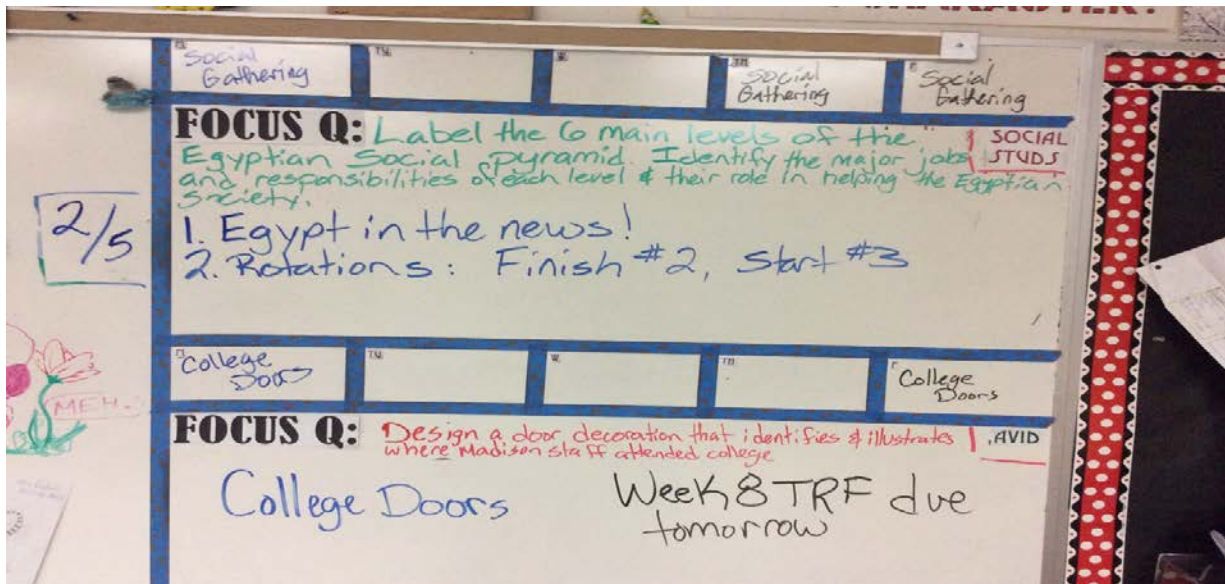 M Social
Gathering
TU
W
TH Social
Gathering
F Social
Gathering
FOCUS Q: Label the 6 main levels of the
Egyptian Social pyramid. Identify the major jobs
and responsibilities of each level & their role in helping the Egyptian
Society.
SOCIAL
STUDS
2/5
1. Egypt in the news!
2. Rotations: Finish #2, Start #3
College
Doors
TU
W
TH
College
Doors
MEH.
FOCUS Q: Design a door decoration that identifies & illustrates
where Madison staff attended college
AVID
College Doors
Week 8 TRF due
tomorrow